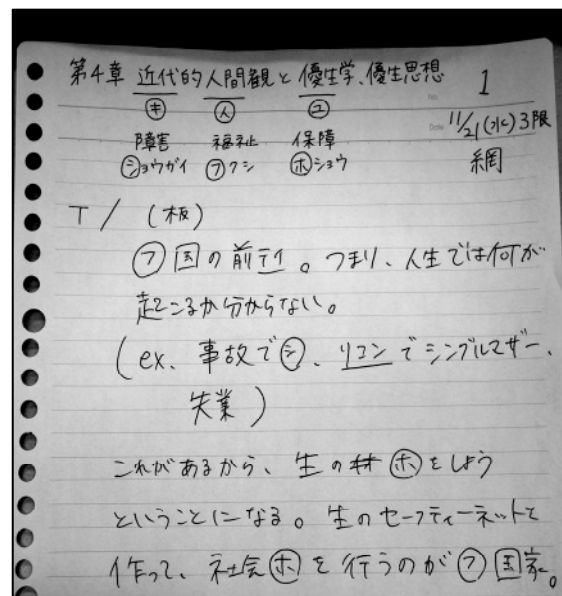 第4章 近代的人間観と優生学、優生思想 1
㋖ ㋅ ㋴
No.
Date 11/21(水)3限
障害 福祉 保障 網
㋛ョウガイ ㋫クシ ㋭ショウ
T / (板)
㋫国の前テイ。つまり、人生では何が
起こるか分からない。
(ex. 事故で㋛、リコンでシングルマザー、
失業)
これがあるから、生の㋭をしよう
ということになる。生のセーフティーネットを
作って、社会㋭を行うのが㋫国家。